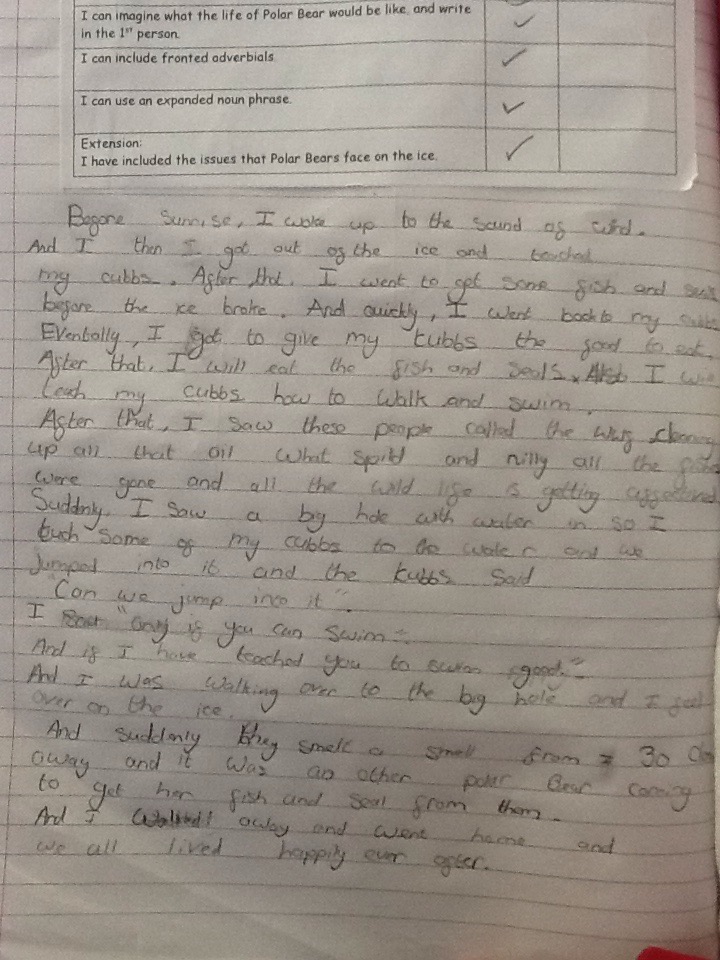 I can imagine what the life of Polar Bear would be like, and write
in the 1st person.
I can include fronted adverbials
I can use an expanded noun phrase.
Extension:
I have included the issues that Polar Bears face on the ice.
Before Sunrise, I woke up to the sound of wind.
And I then I got out of the ice and touched
my cubbs. After that, I went to get some fish and
before the ice broke. And quickly, I went back to my
Eventally, I got to give my cubbs the food to eat.
After that, I will eat the fish and seals. And I
teach my cubbs how to walk and swim.
After that, I saw these people called the
up all that oil what spild and nilly all the
were gone and all the wild life is getting
Suddnly, I saw a big hole with water in so I
tuch some of my cubbs to the water and we
jumped into it and the kubbs said
"Can we jump into it".
I "Only if you can swim"
And if I have teached you to swim good."
And I was walking over to the big hole and I
over on the ice.
And suddenly they smelt a smell from 30
away and it was an other polar Bear coming
to get her fish and seal from them.
And I walked away and went home and
we all lived happily ever after.